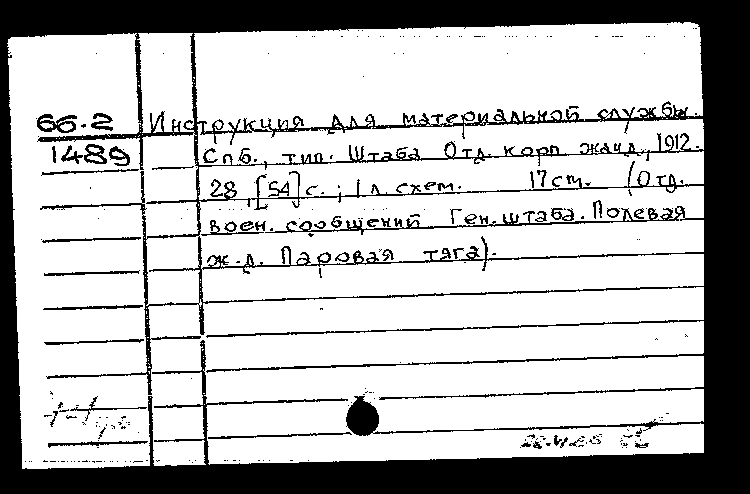 66.2 Инструкция для материальной службы.
1489 Спб., тип. Штаба Отд. корп жанд., 1912.
28, [54] с.; 1 л. схем. 17 cm. (Отд.
воен. сообщений Ген. штаба. Полевая
ж. д. Паровая тяга).